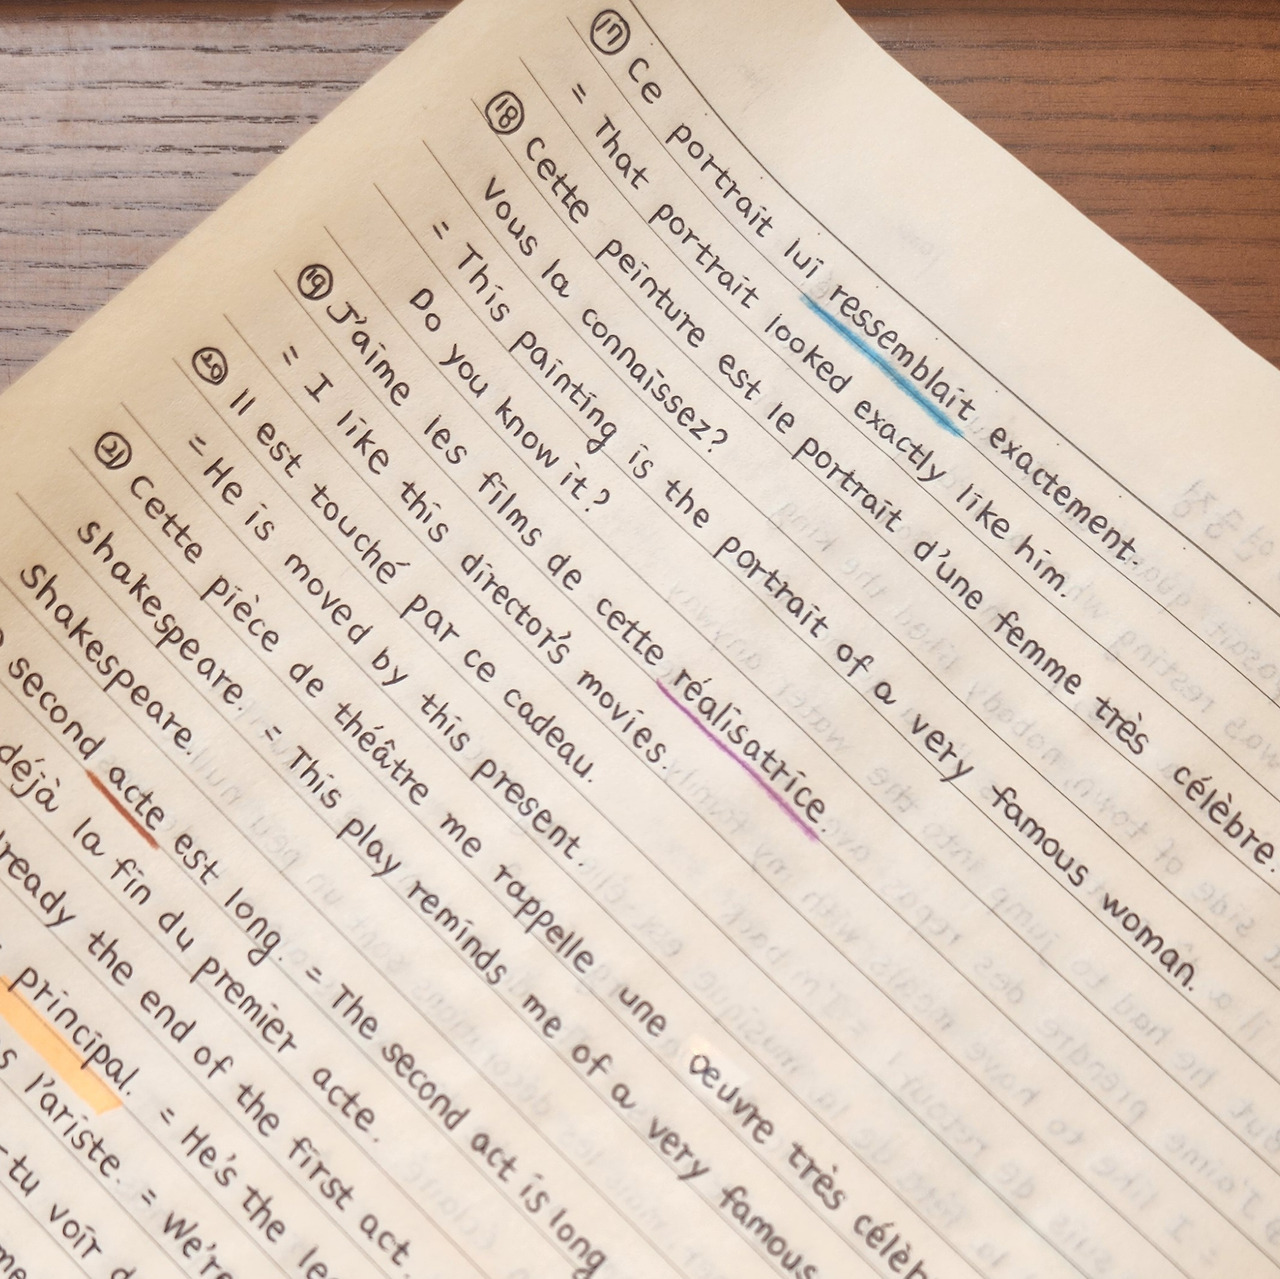 ⑰ Ce portrait lui ressemblait exactement.
= That portrait looked exactly like him.
⑱ Cette peinture est le portrait d'une femme très célèbre.
Vous la connaissez?
= This painting is the portrait of a very famous woman.
Do you know it?
⑲ J'aime les films de cette réalisatrice.
= I like this director's movies.
⑳ Il est touché par ce cadeau.
= He is moved by this present.
㉑ Cette pièce de théâtre me rappelle une œuvre très célèb
shakespeare. = This play reminds me of a very famous
Shakespeare.
second acte est long. = The second act is long
déjà la fin du premier acte.
ready the end of the first act.
principal. = He's the le
l'ariste. = We're
-tu voir d